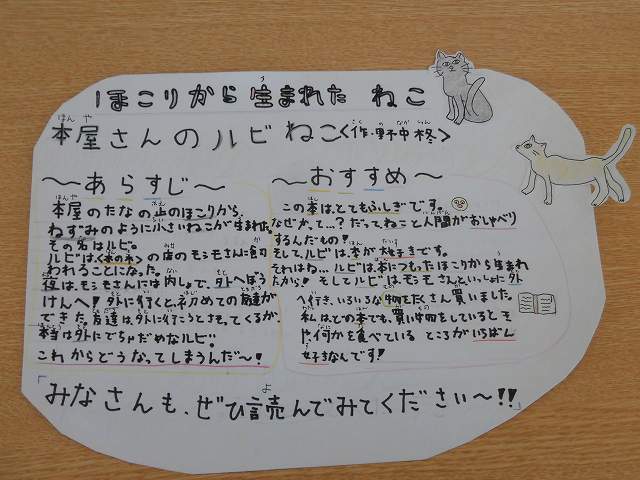 ほこりから生まれた ねこ
本屋さんのルビねこ<作・野中 柊>
～あらすじ～
本屋のたなの上のほこりから、
ねずみのように小さいねこが生まれた。
その名はルビ。
ルビは、<本のネコ>の店のモシモさんに食
われることになった。
夜は、モシモさんには内しょで、外へぼう
けんへ！外に行くと、初めての友達が
できた。友達は、外に行こうとさそってくるが、
本当は外にでちゃだめなルビ。
これからどうなってしまうんだ～！
～おすすめ～
この本は、とてもふしぎです。
なぜかって…？だってねこと人間がおしゃべり
するんだもの！
そしてルビは、本が大好きです。
それはね…ルビは、本につもったほこりから生まれ
たから！そしてルビは、モシモさんといっしょに外
へ行き、いろいろな物をたくさん買いました。
私は、どの本でも、買い物をしているとき
や何かを食べている ところがいちばん
好きなんです！
「みなさんも、ぜひ読んでみてください～!!」